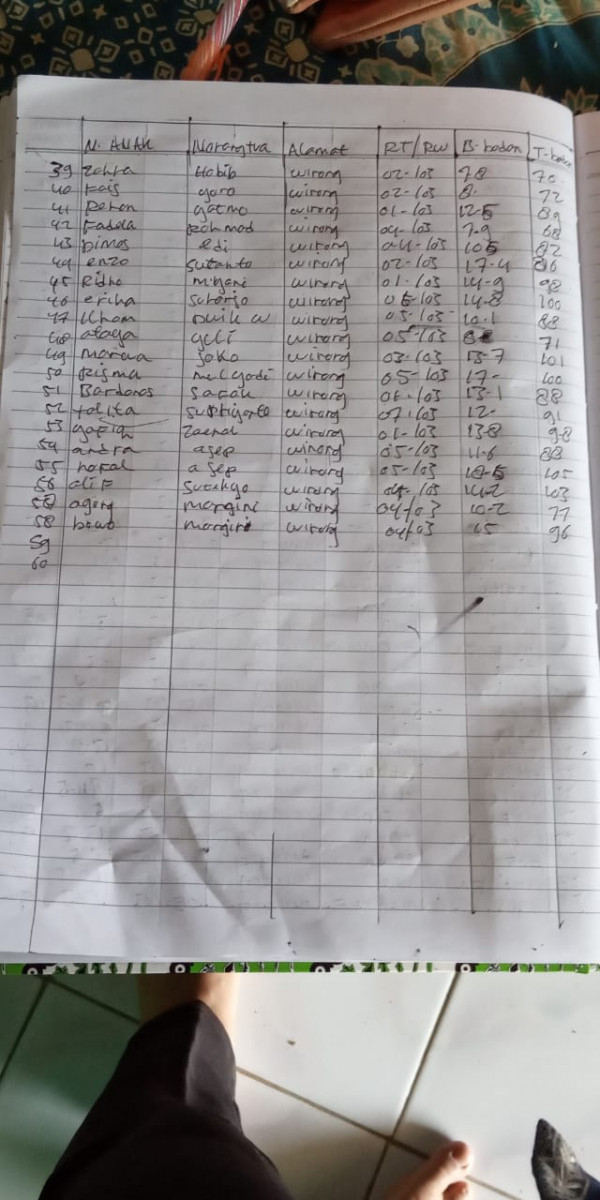 N. ANAK Norangtua Alamat RT/RW B-badan T-badan
39 Zahra Habib wirong 02-/03 7.8 70
40 Kais goro wirong 02-/03 8. 72
41 Rehan gatmo wirong 01-/03 12-5 89
42 Fadila Rohmad wirong 04-/03 7.9 68
43 Dimas edi wirong 04-/03 10 82
44 enzo Sutanto wirong 02-/03 17-4 86
45 Ridho wirong 01-/03 14-9 98
46 ericha Soharjo wirong 05-/03 14-8 100
47 Ilham Dwik w wirong 05-/03 10.1 88
48 ataya wirong 05-/03 71
49 Marwa Joko wirong 03-/03 13-7 101
50 Risma mulyadi wirong 05-/03 17- 100
51 wirong 06-/03 13-1 88
52 talita wirong 07-/03 12- 91
53 Zaenal wirong 01-/03 13-8 98
54 andra asep wirong 05-/03 11-6 88
55 nofal asep wirong 05-/03 105
56 alif wirong 04-/03 14-2 103
58 ageng margini wirong 04/03 10-2 77
58 margini wirong 04/03 15 96
59
60